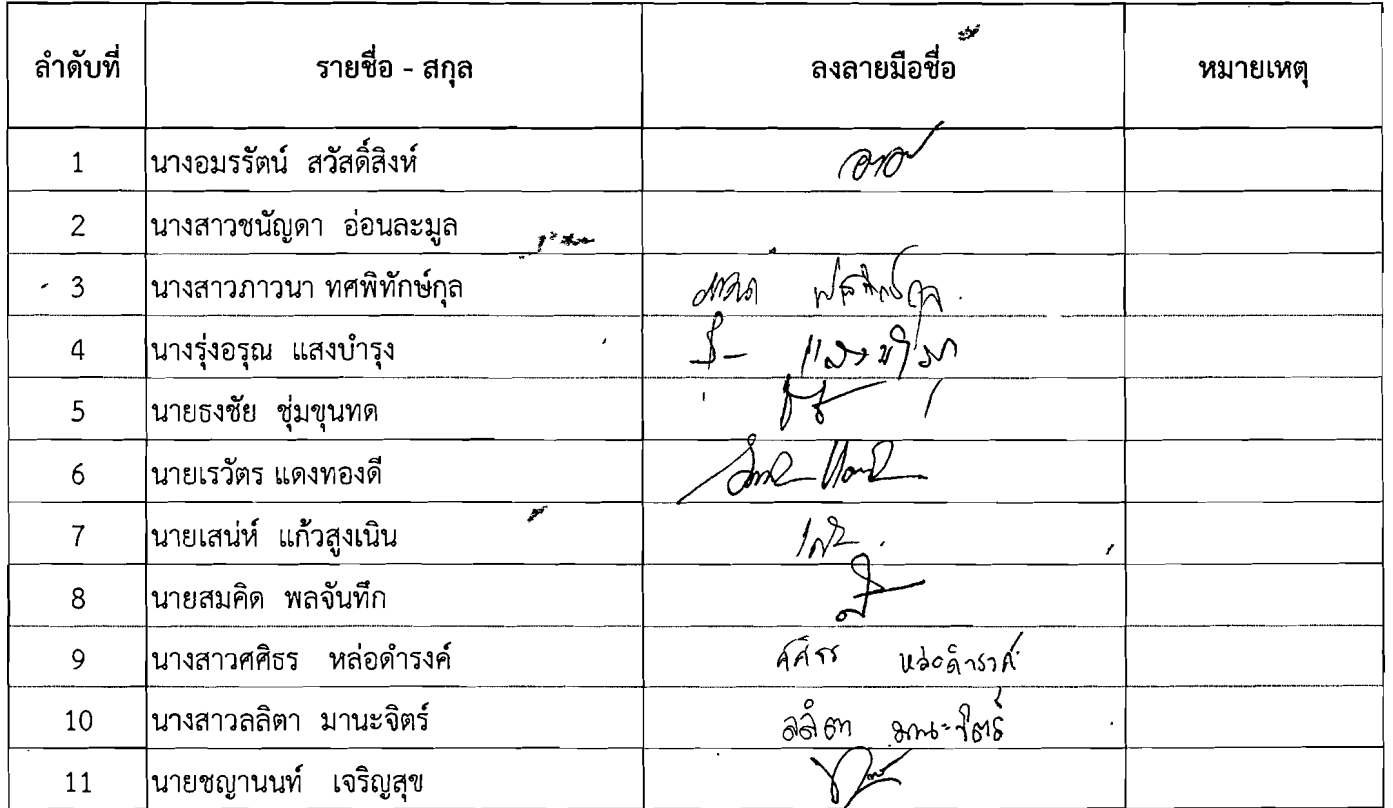 ลำดับที่ รายชื่อ - สกุล ลงลายมือชื่อ หมายเหตุ
1 นางอมรรัตน์ สวัสดิ์สิงห์
2 นางสาวชนัญดา อ่อนละมูล
3 นางสาวภาวนา ทศพิทักษ์กุล
4 นางรุ่งอรุณ แสงบำรุง
5 นายธงชัย ชุ่มขุนทด
6 นายเรวัตร แดงทองดี
7 นายเสน่ห์ แก้วสูงเนิน
8 นายสมคิด พลจันทึก
9 นางสาวศศิธร หล่อดำรงค์ ศศิธร หล่อดำรงค์
10 นางสาวลลิตา มานะจิตร์ ลลิตา มานะจิตร์
11 นายชญานนท์ เจริญสุข